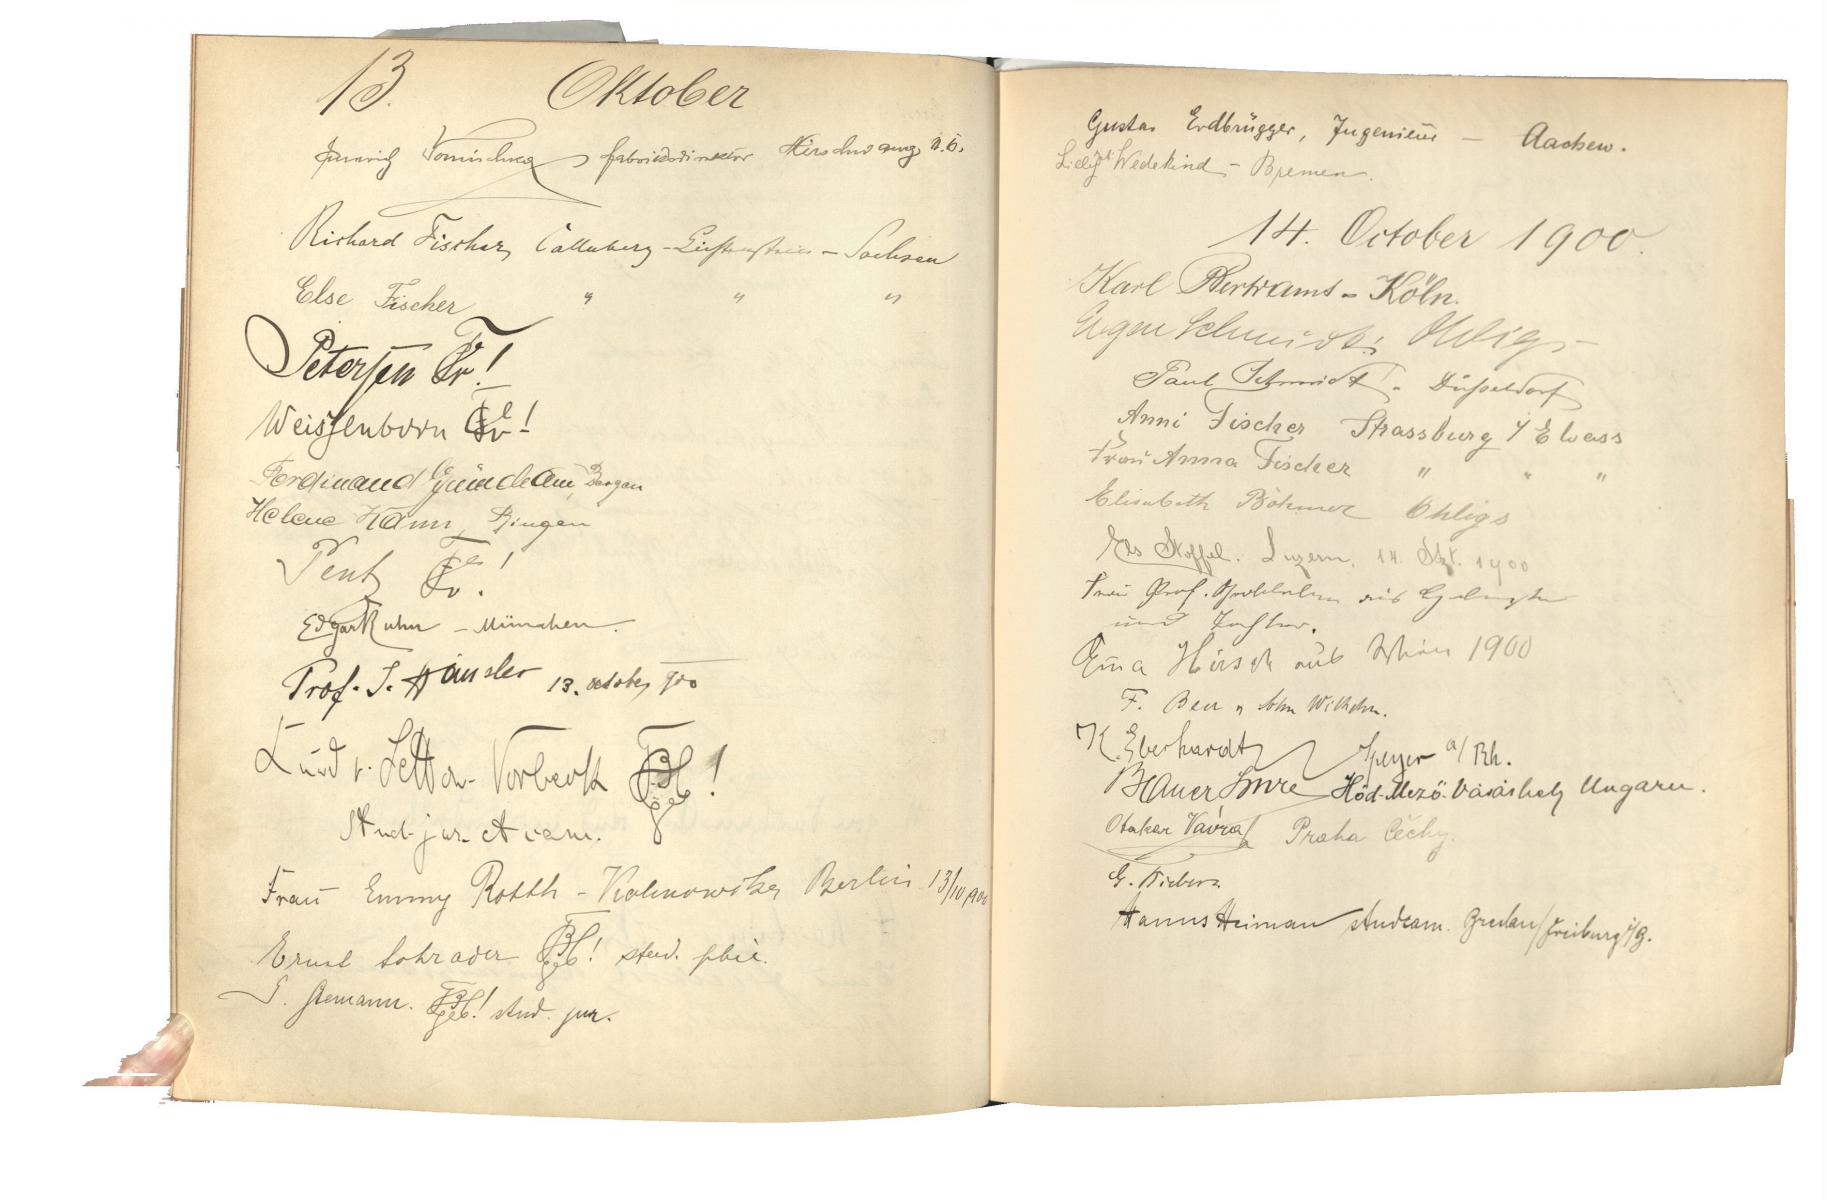 13. Oktober
Heinrich Fabriksdirektor Hirschwang N.Ö.
Richard Fischer, Callnberg-Lichtenstein - Sachsen
Else Fischer " " "
Petersen !
Weissenborn !
Ferdinand Bingen
Helene Hamm, Bingen
Pentz !
Edgar Kuhn - München.
Prof. J. Häusler 13. october 900
Kurd v. Lettow-Vorbeck !
stud. jur. et cam.
Frau Emmy Rotth - Kalinowsky Berlin 13/10 1900
Ernst Schrader ! stud. phil.
G. ! stud. jur.
Gustav Erdbrügger, Ingenieur - Aachen.
Wedekind - Bremen.
14. October 1900.
Karl Bertrams - Köln.
Eugen Schmidt, Ohligs
Paul Schmidt - Düsseldorf
Anni Fischer Strassburg i/ Elsass
Frau Anna Fischer " " "
Elisabeth Böhmer Ohligs
Els Stoffel. Luzern, 14. Okt. 1900
Frau Prof. aus
und Tochter.
Hirsch aus Wien 1900
F. u. Sohn Wilhelm.
K. Eberhardt Speyer a/ Rh.
Bauer Imre Hód-Mező-Vásárhely Ungarn.
Otakar Vávra Praha Čechy.
G.
Hanns Heiman stud cam. Breslau/Freiburg i/B.